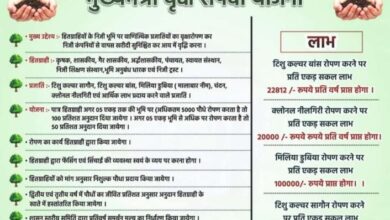 मुख्यमंत्री वृक्ष संपदा योजना
मुख्य उद्देश्य : हितग्राहियों के निजी भूमि पर वाणिज्यिक प्रजातियों का वृक्षारोपण कर
निजी कंपनियों से वापस खरीदी सुनिश्चित कर आय में वृद्धि करना ।
हितग्राही : कृषक, शासकीय, गैर शासकीय, अर्द्धशासकीय, पंचायत, स्वायत्त संस्थान,
निजी शिक्षण संस्थान, भूमि अनुबंध धारक एवं निजी ट्रस्ट ।
प्रजाति : टिशू कल्चर सागौन, टिशू कल्चर बांस, मिलिया डुबिया (मालाबार नीम), चंदन,
क्लोनल नीलगिरी एवं आर्थिक लाभ प्रदाय करने वाले प्रजाति ।
योजना : पात्र हितग्राही अगर 05 एकड़ तक की भूमि पर (अधिकतम 5000 पौधे) रोपण करता है तो
100 प्रतिशत अनुदान दिया जायेगा । अगर 05 एकड़ से अधिक भूमि पर रोपण करता है तो
50 प्रतिशत अनुदान दिया जायेगा ।
रोपण का कार्य हितग्राही द्वारा किया जायेगा ।
हितग्राही द्वारा फेंसिंग एवं सिंचाई की व्यवस्था स्वयं के व्यय पर करना होगा ।
हितग्राहियों को मांग अनुसार निशुल्क पौधा प्रदाय किया जायेगा ।
द्वितीय एवं तृतीय वर्ष में पौधों का जीवित प्रतिशत अनुसार अनुदान हितग्राही के
खाते में हस्तांतरित किया जायेगा ।
शासन स्तरीय समिति द्वारा प्रतिवर्ष समर्थन मूल्य का निर्धारण किया जायेगा ।
लाभ
टिशू कल्चर बांस रोपण करने पर
प्रति एकड़ सकल लाभ
22812 /- रुपये प्रति वर्ष प्राप्त होगा ।
क्लोनल नीलगिरी रोपण करने पर
प्रति एकड़ सकल लाभ
20000 /- रूपये रूपये प्रति वर्ष प्राप्त होगा ।
मिलिया डुबिया रोपण करने पर
प्रति एकड़ सकल लाभ
100000/- रूपये प्राप्त होगा ।
टिशू कल्चर सागौन रोपण करने
पर प्रति एकड़ सकल लाभ